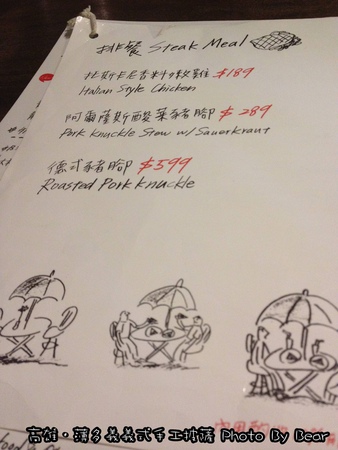 排餐 Steak Meal
托斯卡尼香料嫩雞 $189
Italian Style Chicken
阿爾薩斯酸菜豬腳 $289
Pork Knuckle Stew w/ Sauerkraut
德式豬腳 $599
Roasted Pork Knuckle
高雄。薄多義義式手工披薩 Photo By Bear